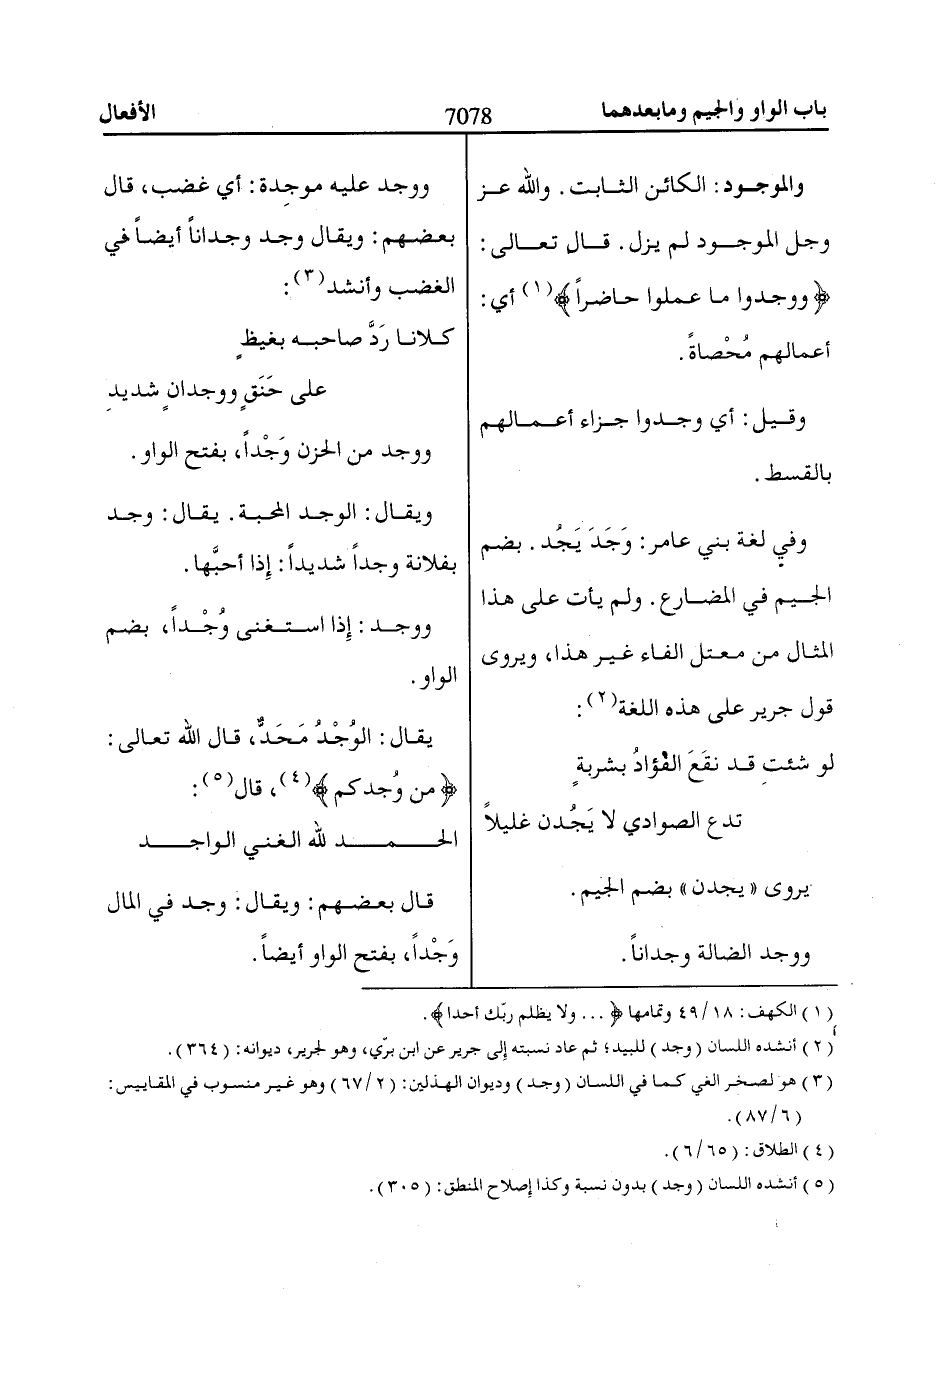 باب الواو والجيم ومابعدهما 7078 الأفعال
والموجود: الكائن الثابت. والله عز
وجل الموجود لم يزل. قال تعالى:
﴿ووجدوا ما عملوا حاضراً﴾(١) أي:
أعمالهم مُحْصاةً.
وقيل: أي وجدوا جزاء أعمالهم
بالقسط.
وفي لغة بني عامر: وَجَدَ يَجُد. بضم
الجيم في المضارع. ولم يأت على هذا
المثال من معتل الفاء غير هذا، ويروى
قول جرير على هذه اللغة(٢):
لو شئتِ قد نقَعَ الفؤادُ بشربةٍ
تدع الصوادي لا يَجُدن غليلاً
يروى «يجدن» بضم الجيم.
ووجد الضالة وجداناً.
ووجد عليه موجِدة: أي غضب، قال
بعضهم: ويقال وجد وجداناً أيضاً في
الغضب وأنشد(٣):
كلانا رَدَّ صاحبه بغيظٍ
على حَنَقٍ ووجدانٍ شديدِ
ووجد من الحزن وَجْداً، بفتح الواو.
ويقال: الوجد المحبة. يقال: وجد
بفلانة وجداً شديداً: إذا أحبَّها.
ووجد: إذا استغنى وُجْداً، بضم
الواو.
يقال: الوُجْدُ مَحَدٌّ، قال الله تعالى:
﴿من وُجدكم﴾(٤)، قال(٥):
الحمد لله الغني الواجد
قال بعضهم: ويقال: وجد في المال
وَجْداً، بفتح الواو أيضاً.
(١) الكهف: ٤٩/١٨ وتمامها ﴿... ولا يظلم ربّك أحدا﴾.
(٢) أنشده اللسان (وجد) للبيد؛ ثم عاد نسبته إلى جرير عن ابن برّي، وهو لجرير، ديوانه: (٣٦٤).
(٣) هو لصخر الغي كما في اللسان (وجد) وديوان الهذلين: (٦٧/٢) وهو غير منسوب في المقاييس:
(٨٧/٦).
(٤) الطلاق: (٦/٦٥).
(٥) أنشده اللسان (وجد) بدون نسبة وكذا إصلاح المنطق: (٣٠٥).